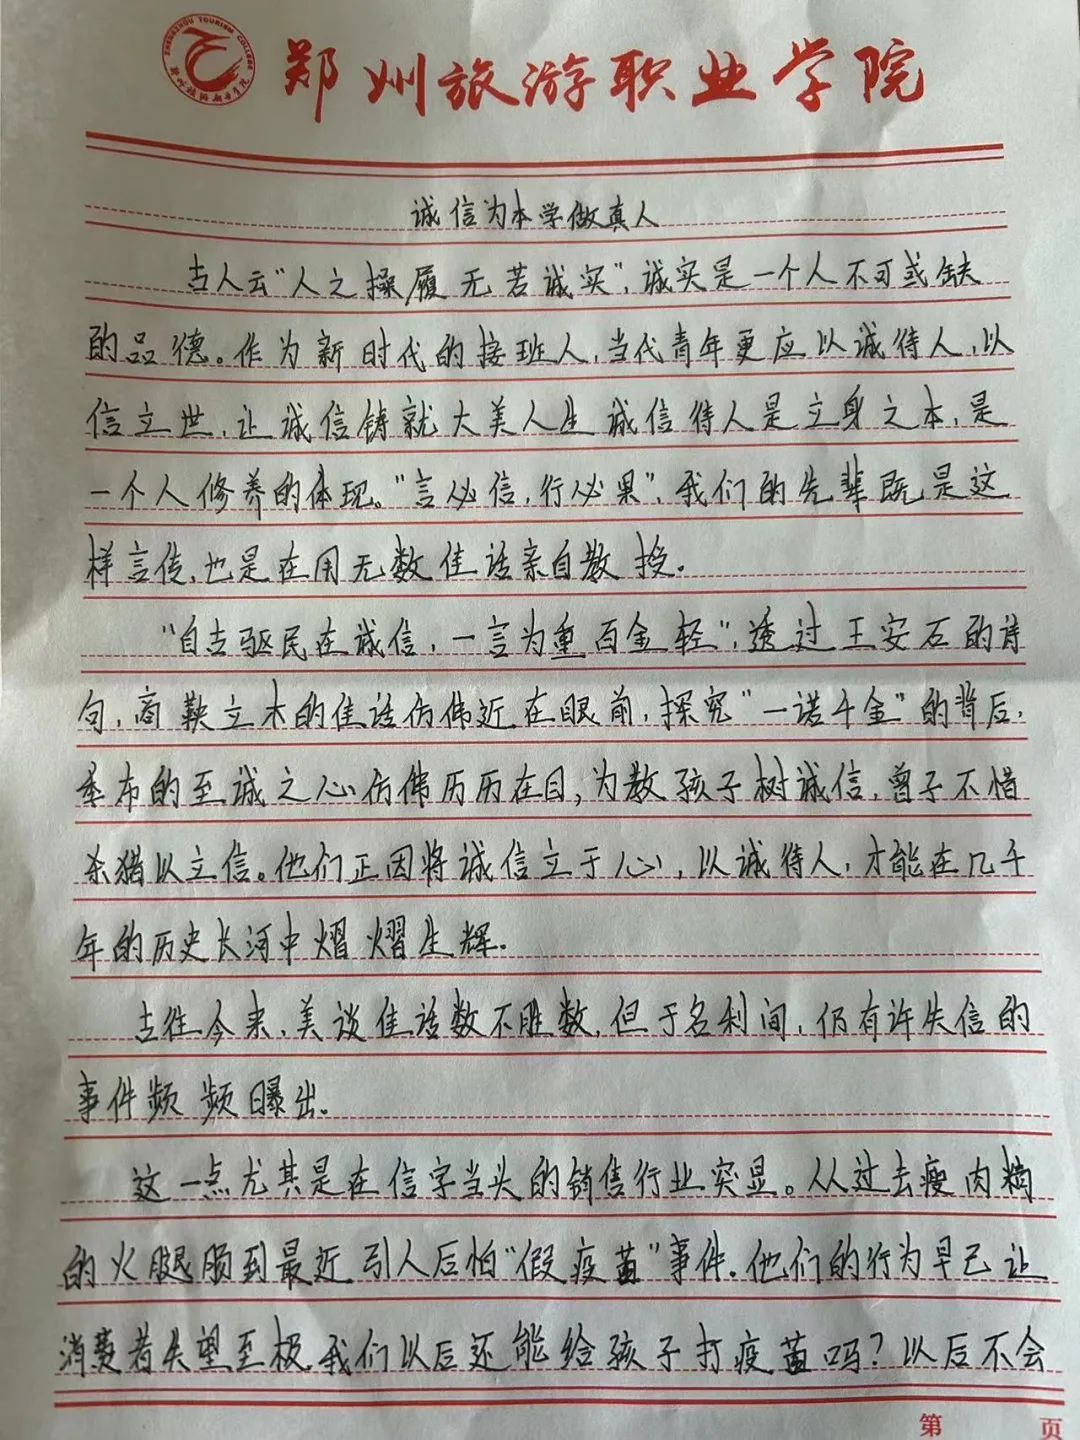 ZHENGZHOU TOURISM COLLEGE
郑州旅游职业学院
郑州旅游职业学院
诚信为本学做真人
古人云"人之操履无若诚实",诚实是一个人不可或缺
的品德。作为新时代的接班人,当代青年更应以诚待人,以
信立世,让诚信铸就大美人生 诚信待人是立身之本,是
一个人修养的体现。"言必信,行必果",我们的先辈既是这
样言传,也是在用无数佳话亲自教授.
"自古驱民在诚信,一言为重百金轻",透过王安石的诗
句,商鞅立木的佳话仿佛近在眼前,探究"一诺千金"的背后,
季布的至诚之心仿佛历历在目,为教孩子树诚信,曾子不惜
杀猪以立信。他们正因将诚信立于心,以诚待人,才能在几千
年的历史长河中熠熠生辉.
古往今来,美谈佳话数不胜数,但于名利间,仍有许失信的
事件频频曝出.
这一点尤其是在信字当头的销售行业突显。从过去瘦肉精
的火腿肠到最近引人后怕"假疫苗"事件.他们的行为早已让
消费者失望至极,我们以后还能给孩子打疫苗吗?以后不会
第 页